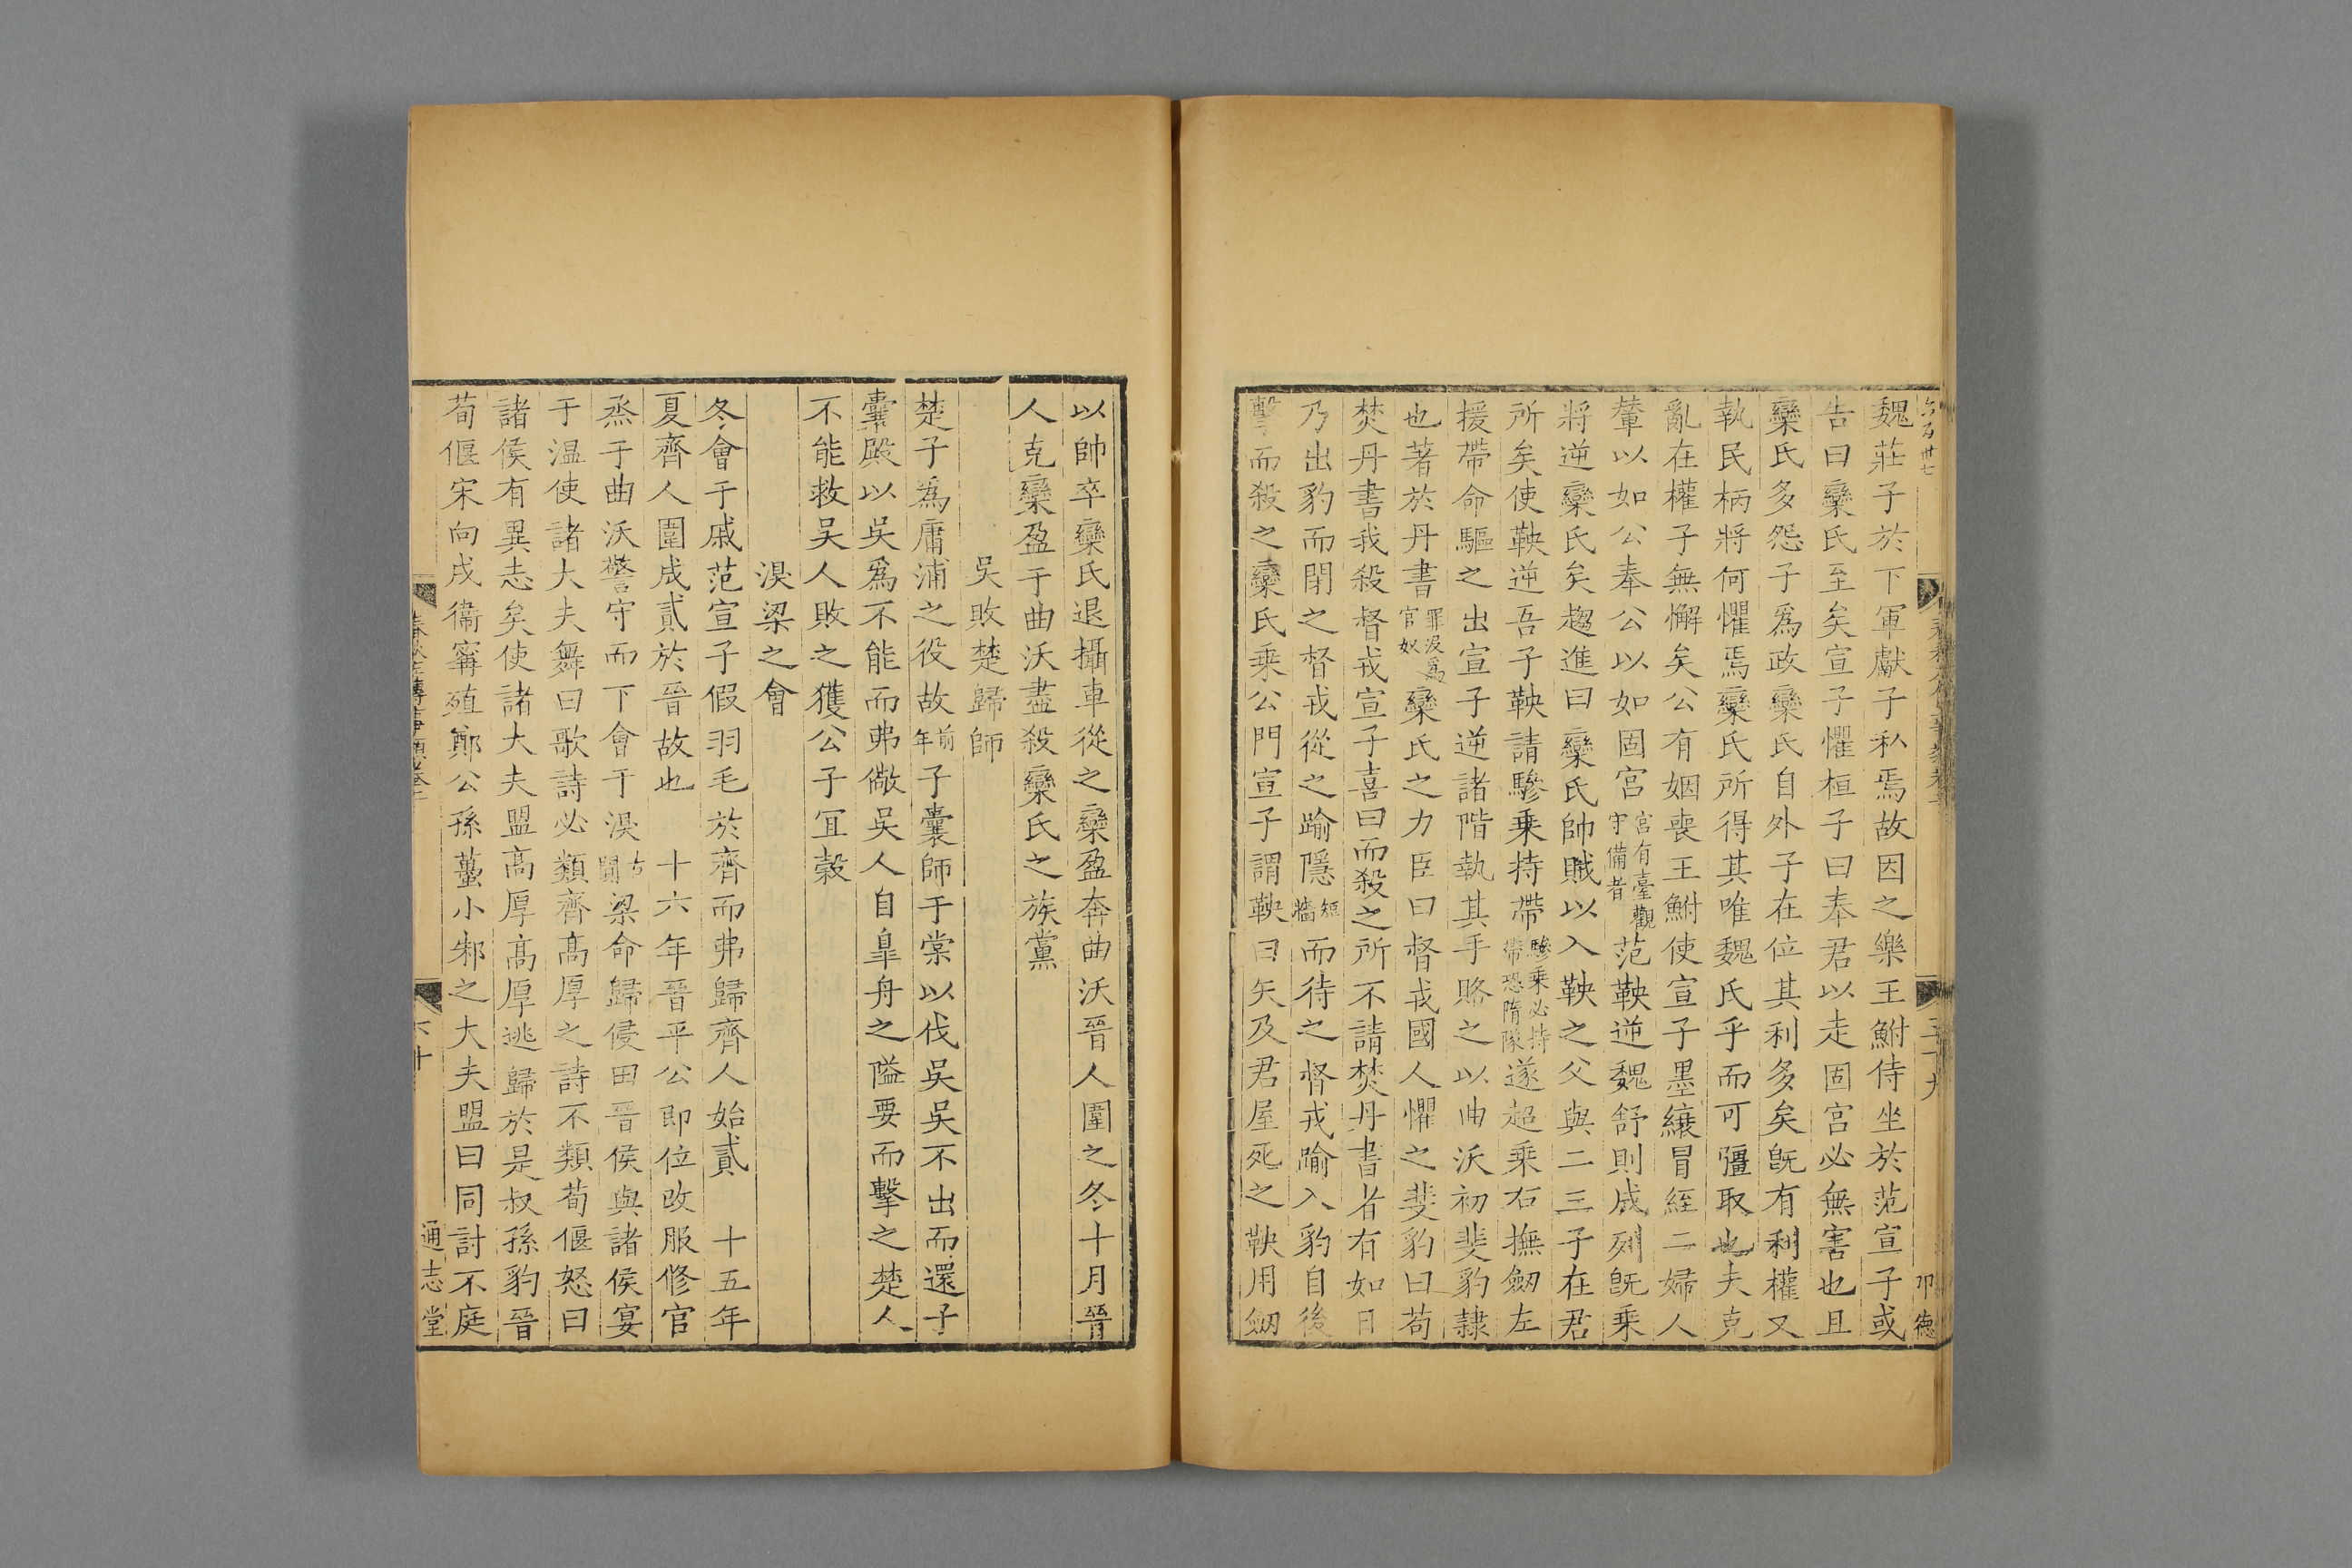 魏莊子於下軍獻子私焉故因之樂王鮒侍坐於范宣子或
告曰欒氏至矣宣子懼桓子曰奉君以走固宮必無害也且
欒氏多怨子爲政欒氏自外子在位其利多矣旣有利權又
執民柄將何懼焉欒氏所得其唯魏氏乎而可彊取也夫克
亂在權子無懈矣公有姻喪王鮒使宣子墨縗冒絰二婦人
輦以如公奉公以如固宮宮有臺觀守備者范鞅逆魏舒則成列旣乘
將逆欒氏矣趨進曰欒氏帥賊以入鞅之父與二三子在君
所矣使鞅逆吾子鞅請驂乘持帶驂乘必持帶恐隋隊遂超乘右撫劒左
援帶命驅之出宣子逆諸階執其手賂之以曲沃初斐豹隷
也著於丹書罪沒爲官奴欒氏之力臣曰督戎國人懼之斐豹曰苟
焚丹書我殺督戎宣子喜曰而殺之所不請焚丹書者有如日
乃出豹而閉之督戎從之踰隱短牆而待之督戎踰入豹自後
擊而殺之欒氏乘公門宣子謂鞅曰矢及君屋死之鞅用劒
以帥卒欒氏退攝車從之欒盈奔曲沃晉人圍之冬十月晉
人克欒盈于曲沃盡殺欒氏之族黨
吳敗楚歸師
楚子爲庸浦之役故前年子囊師于棠以伐吳吳不出而還子
囊殿以吳爲不能而弗儆吳人自皐舟之隘要而擊之楚人
不能救吳人敗之獲公子宜穀
湨梁之會
冬會于戚范宣子假羽毛於齊而弗歸齊人始貳　十五年
夏齊人圍成貳於晉故也　十六年晉平公即位改服修官
烝于曲沃警守而下會于湨古闃梁命歸侵田晉侯與諸侯宴
于溫使諸大夫舞曰歌詩必類齊高厚之詩不類荀偃怒曰
諸侯有異志矣使諸大夫盟高厚高厚逃歸於是叔孫豹晉
荀偃宋向戌衞甯殖鄭公孫蠆小邾之大夫盟曰同討不庭
通志堂